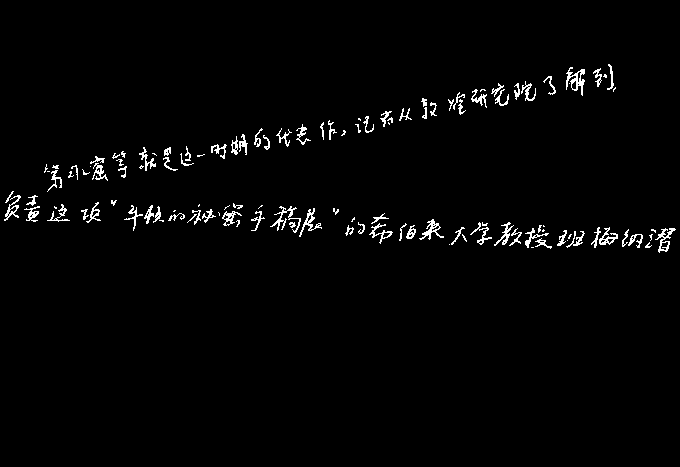 第窟等就是这一时期的代表作。记者从敦煌研究院了解到,
负责这项“牛顿的秘密手稿展”的希伯来大学教授班梅纳潜